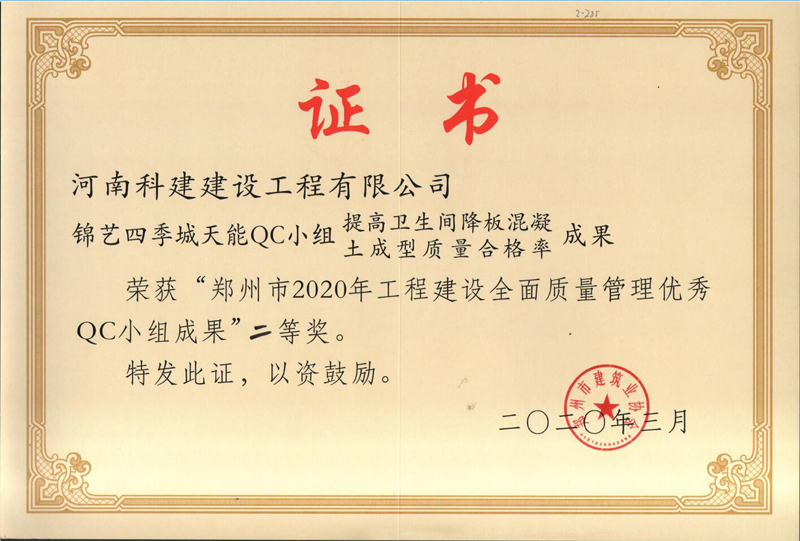 2-225
证 书
河南科建建设工程有限公司
锦艺四季城天能QC小组 提高卫生间降板混凝土成型质量合格率 成果
荣获“郑州市2020年工程建设全面质量管理优秀
QC小组成果”二等奖。
特发此证，以资鼓励。
郑州市建筑业协会
二〇二〇年三月